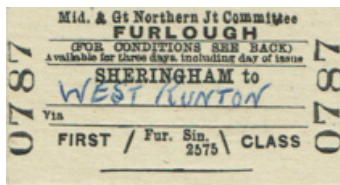 Mid. & Gt Northern Jt Committee
FURLOUGH
(FOR CONDITIONS SEE BACK)
Available for three days, including day of issue
SHERINGHAM to
WEST RUNTON
Via
FIRST / Fur. Sin. \ CLASS
2575
0787
0787